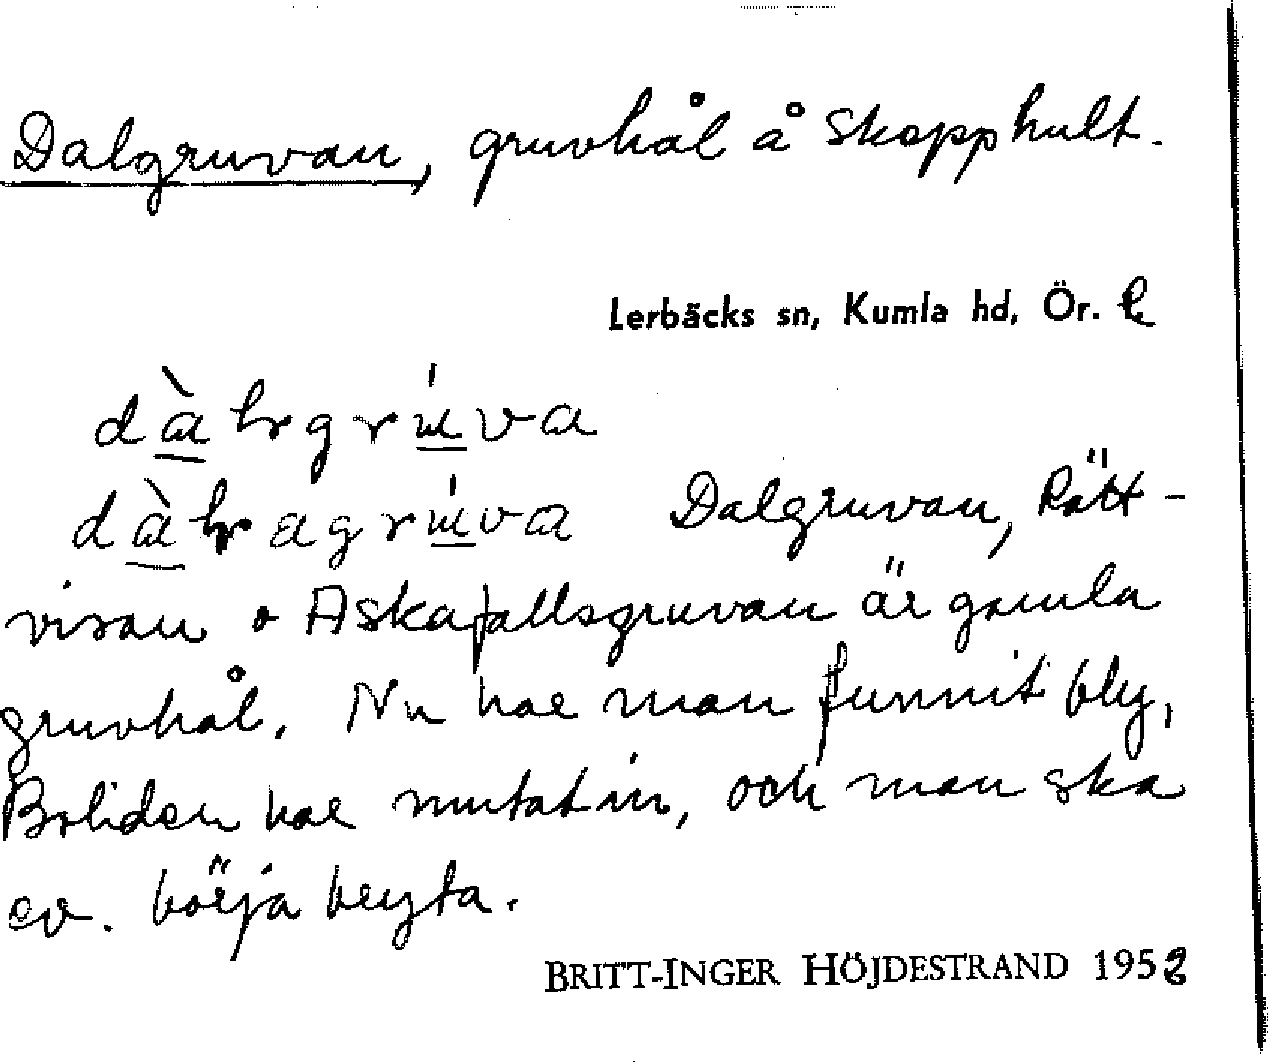 Dalgruvan, gruvhål å Skepphult.
Lerbäcks sn, Kumla hd, Ör.
Dalgruvan, Rätt-
visan o Askafallsgruvan är gamla
gruvhål. Nu har man funnit bly,
Boliden har mutat in, och man ska
ev. börja bryta.
BRITT-INGER HÖJDESTRAND 1952